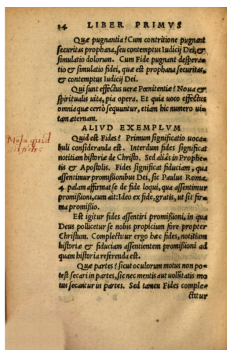 34 LIBER PRIMVS
Quæ pugnantia? Cum contritione pugnant
securitas prophana, seu contemptus Iudicij Dei, &
simulatio dolorum. Cum Fide pugnant desperatio
& simulatio fidei, quæ est prophana securitas,
& contemptus Iudicij Dei.
Qui sunt effectus veræ Pœnitentiæ? Noua &
spiritualis vita, pia opera. Et quia uoco effectus
omnia quæ certò sequuntur, etiam hic numero uitam
æternam.
ALIVD EXEMPLVM
Quid est Fides? Primum significatio uocabuli
consideranda est. Interdum fides significat
notitiam historiæ de Christo. Sed aliàs in Prophetis
& Apostolis. Fides significat fiduciam, qua
assentimur promissionibus Dei, sic Paulus Roma.
4 palam affirmat se de fide loqui, qua assentimur
promissioni, cum ait: Ideo ex fide, gratis, ut sit firma
promissio.
Est igitur fides assentiri promissioni, in qua
Deus pollicetur se nobis propicium fore propter
Christum. Complectitur ergo hæc fides, notitiam
historiæ & fiduciam assentientem promissioni ad
quam historia referenda est.
Quæ partes? sicut oculorum motus non potest
secari in partes, sic nec mentis aut uoluntatis motus
secantur in partes. Sed tamen Fides comple
ctitur